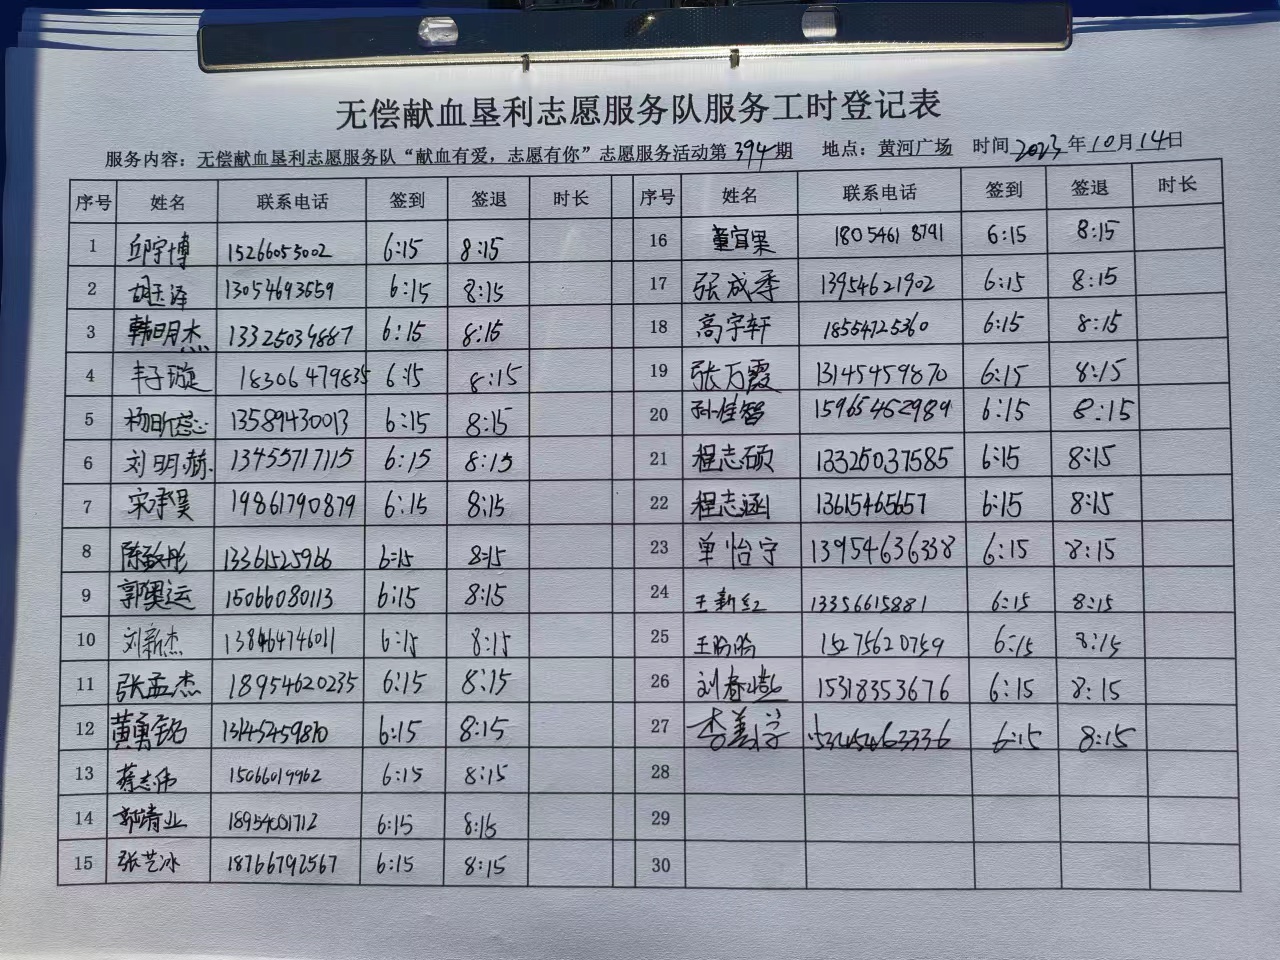 无偿献血垦利志愿服务队服务工时登记表
服务内容：无偿献血垦利志愿服务队“献血有爱，志愿有你”志愿服务活动第394期 地点：黄河广场 时间2023年10月14日
序号 姓名 联系电话 签到 签退 时长 序号 姓名 联系电话 签到 签退 时长
1 邱宇博 15266055002 6:15 8:15 16 董宜果 18054618741 6:15 8:15
2 胡玉泽 13054693659 6:15 8:15 17 张成季 13954621902 6:15 8:15
3 韩明杰 13325034887 6:15 8:15 18 高宇轩 18554725360 6:15 8:15
4 丰子璇 18306479835 6:15 8:15 19 张万霞 13145459870 6:15 8:15
5 杨昕蕊 13589430013 6:15 8:15 20 孙佳智 15965452989 6:15 8:15
6 刘明赫 13455717115 6:15 8:15 21 程志硕 13325037585 6:15 8:15
7 宋承昊 19861790879 6:15 8:15 22 程志涵 13615465657 6:15 8:15
8 陈敏彤 13361525966 6:15 8:15 23 单怡宁 13954636338 6:15 8:15
9 郭奥运 15066080113 6:15 8:15 24 王新红 13356615881 6:15 8:15
10 刘新杰 138464746011 6:15 8:15 25 王盼盼 15275620759 6:15 8:15
11 张孟杰 18954620235 6:15 8:15 26 刘春 15318353676 6:15 8:15
12 黄勇铭 13145459810 6:15 8:15 27 李善学 6:15 8:15
13 蔡志伟 1506019962 6:15 8:15 28
14 郭靖业 18954001712 6:15 8:15 29
15 张艺冰 18766792567 6:15 8:15 30